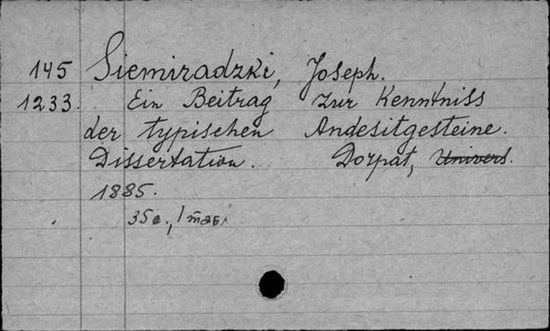 145 Siemiradzki, Joseph.
1233. Ein Beitrag zur Kenntniss
der typischen Andesitgesteine.
Dissertation. Dorpat, Univers.
1885.
35 с., 1 табл